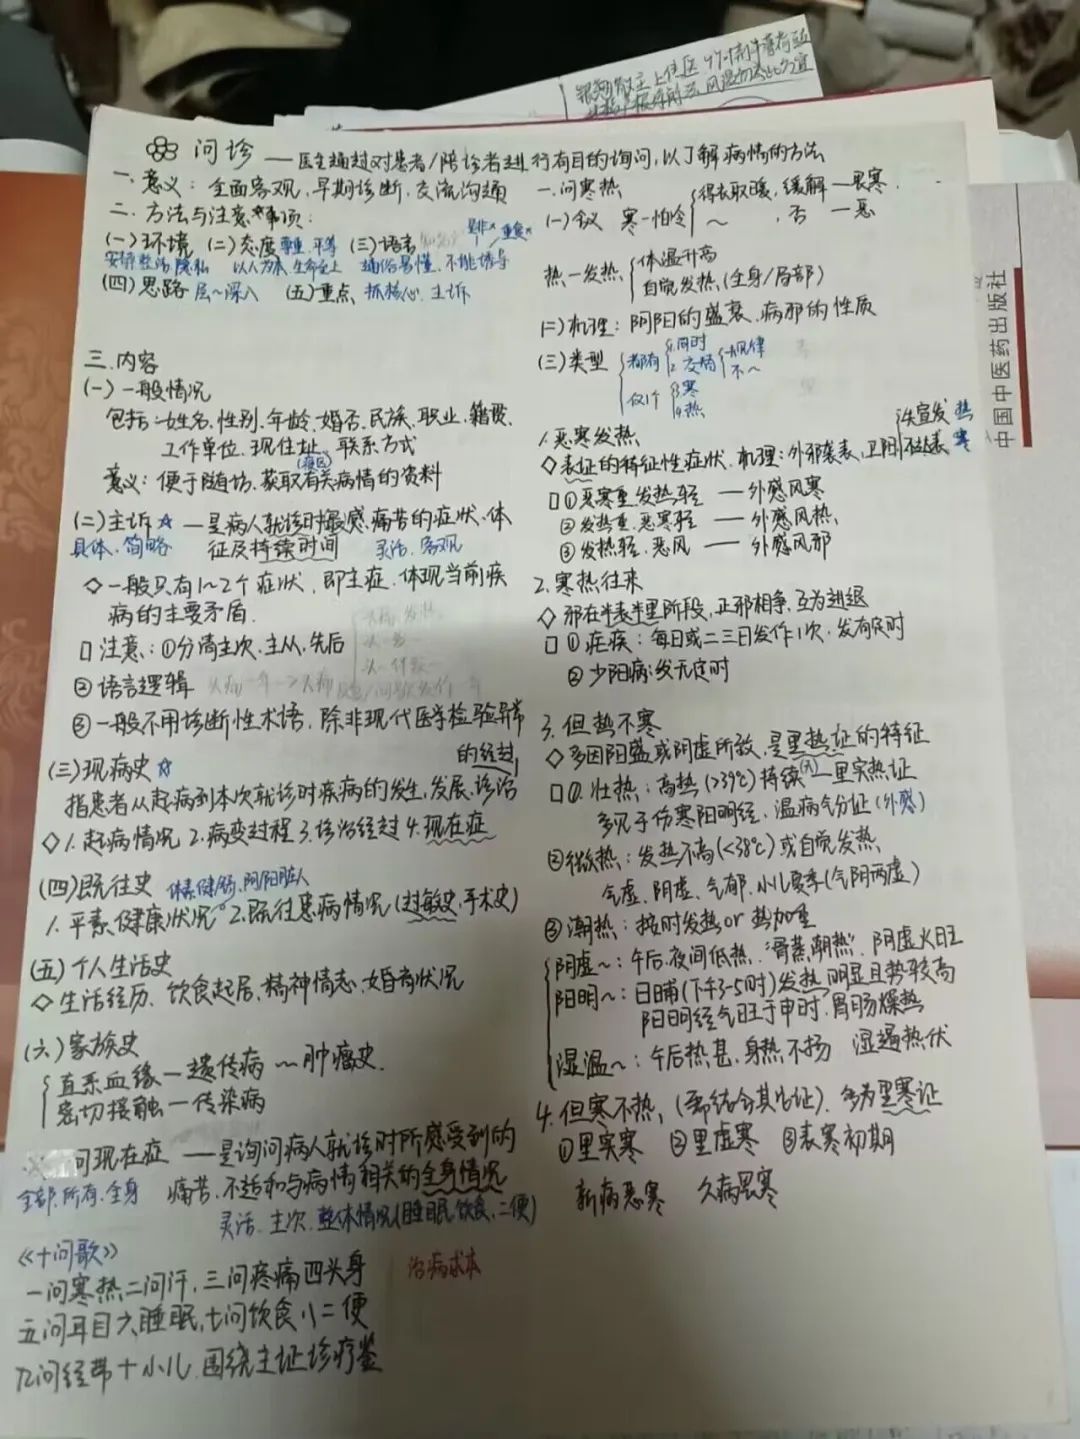 问诊 —— 医生通过对患者/陪诊者进行有目的询问,以了解病情的方法
一.意义: 全面客观,早期诊断,交流沟通
二.方法与注意事项:
(一)环境 (二)态度 尊重.平等 (三)语言 是非× 重复×
安静整洁.隐私 以人为本.生命至上 通俗易懂.不能诱导
(四)思路 层~深入 (五)重点 抓核心.主诉
三.内容
(一)一般情况
包括:姓名.性别.年龄.婚否.民族.职业.籍贯.
工作单位.现住址.联系方式
意义: 便于随访.获取有关病情的资料
(二)主诉☆ —是病人就诊时最感痛苦的症状.体
具体.简略 征及持续时间 灵活.客观
◇一般只有1~2个症状.即主症.体现当前疾
病的主要矛盾.
□注意:①分清主次.主从.先后
②语言逻辑
③一般不用诊断性术语.除非现代医学检验异常
(三)现病史☆ 的经过
指患者从起病到本次就诊时疾病的发生,发展.诊治
◇1.起病情况 2.病变过程 3.诊治经过 4.现在症
(四)既往史 体素健弱.阴阳脏人
1.平素健康状况 2.既往患病情况(过敏史.手术史)
(五)个人生活史
◇生活经历、饮食起居.精神情志.婚育状况
(六)家族史
直系血缘—遗传病 ~肿瘤史.
密切接触—传染病
问现在症 —是询问病人就诊时所感受到的
全部.所有.全身 痛苦.不适和与病情相关的全身情况
灵活.主次.整体情况(睡眠.饮食.二便)
《十问歌》
一问寒热二问汗,三问疼痛四头身 治病求本
五问耳目六睡眠,七问饮食八二便
九问经带十小儿.围绕主证诊疗鉴
一.问寒热
(一)含义 寒—怕冷 得衣取暖,缓解—畏寒.
~ ,否 —恶
热—发热 体温升高
自觉发热(全身/局部)
(二)机理: 阴阳的盛衰.病邪的性质
(三)类型 都有 1.同时
2.交替 规律
不~
仅1个 3.寒
4.热
1.恶寒发热 失宣发 热
◇表证的特征性症状.机理:外邪袭表,卫阳 不达表 寒
□①恶寒重.发热轻 —外感风寒
②发热重.恶寒轻 —外感风热
③发热轻.恶风 —外感风邪
2.寒热往来
◇邪在半表半里阶段,正邪相争,互为进退
□①疟疾:每日或二三日发作1次,发有定时
②少阳病:发无定时
3.但热不寒
◇多因阳盛或阴虚所致,是里热证的特征
□①.壮热: 高热(>39℃)持续—里实热证
多见于伤寒阳明经,温病气分证(外感)
②微热: 发热不高(<38℃)或自觉发热
气虚、阴虚、气郁.小儿夏季(气阴两虚)
③潮热: 按时发热or热加重
阴虚~: 午后.夜间低热.“骨蒸潮热”.阴虚火旺
阳明~: 日晡(下午3-5时)发热明显且势较高
阳明经气旺于申时.胃肠燥热
湿温~: 午后热甚.身热不扬 湿遏热伏
4.但寒不热, (需结合其它证). 多为里寒证
①里实寒 ②里虚寒 ③表寒初期
新病恶寒 久病畏寒
中国中医药出版社